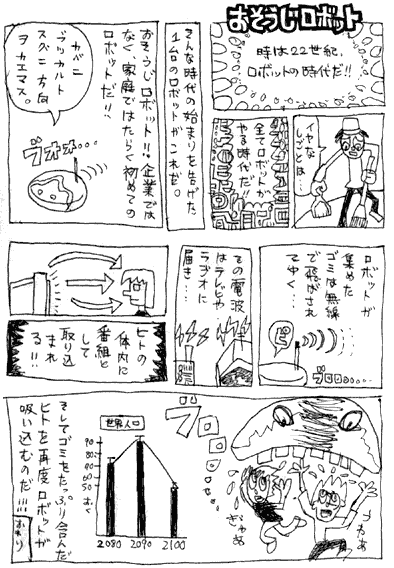 おそうじロボット
時は22世紀、
ロボットの時代だ!!
イヤな
しごとは…
全てロボットが
やる時代だ!!
そんな時代の始まりを告げた
1ムロのロボットがこれだ。
おそうじロボット!!企業では
なく、家庭ではたらく初めての
ロボットだ!!
カベニ
ブツカルト
スグニ方向
ヲカエマス。
ブオオ…
ロボットが
集めた
ゴミは無線
で飛ばされ
てゆく…
ピ
ブロロロ…
その電波
はテレビや
ラジオに
届き…
ヒトの
体内に
番組と
して
取り込
まれ
る!!
ブロロロロ…
きゃあ
わあ
世界人口
90
80
70
60
50
おく
2080 2090 2100
そしてゴミをたっぷり含んだ
ヒトを再度ロボットが
吸い込むのだ!!!
おわり